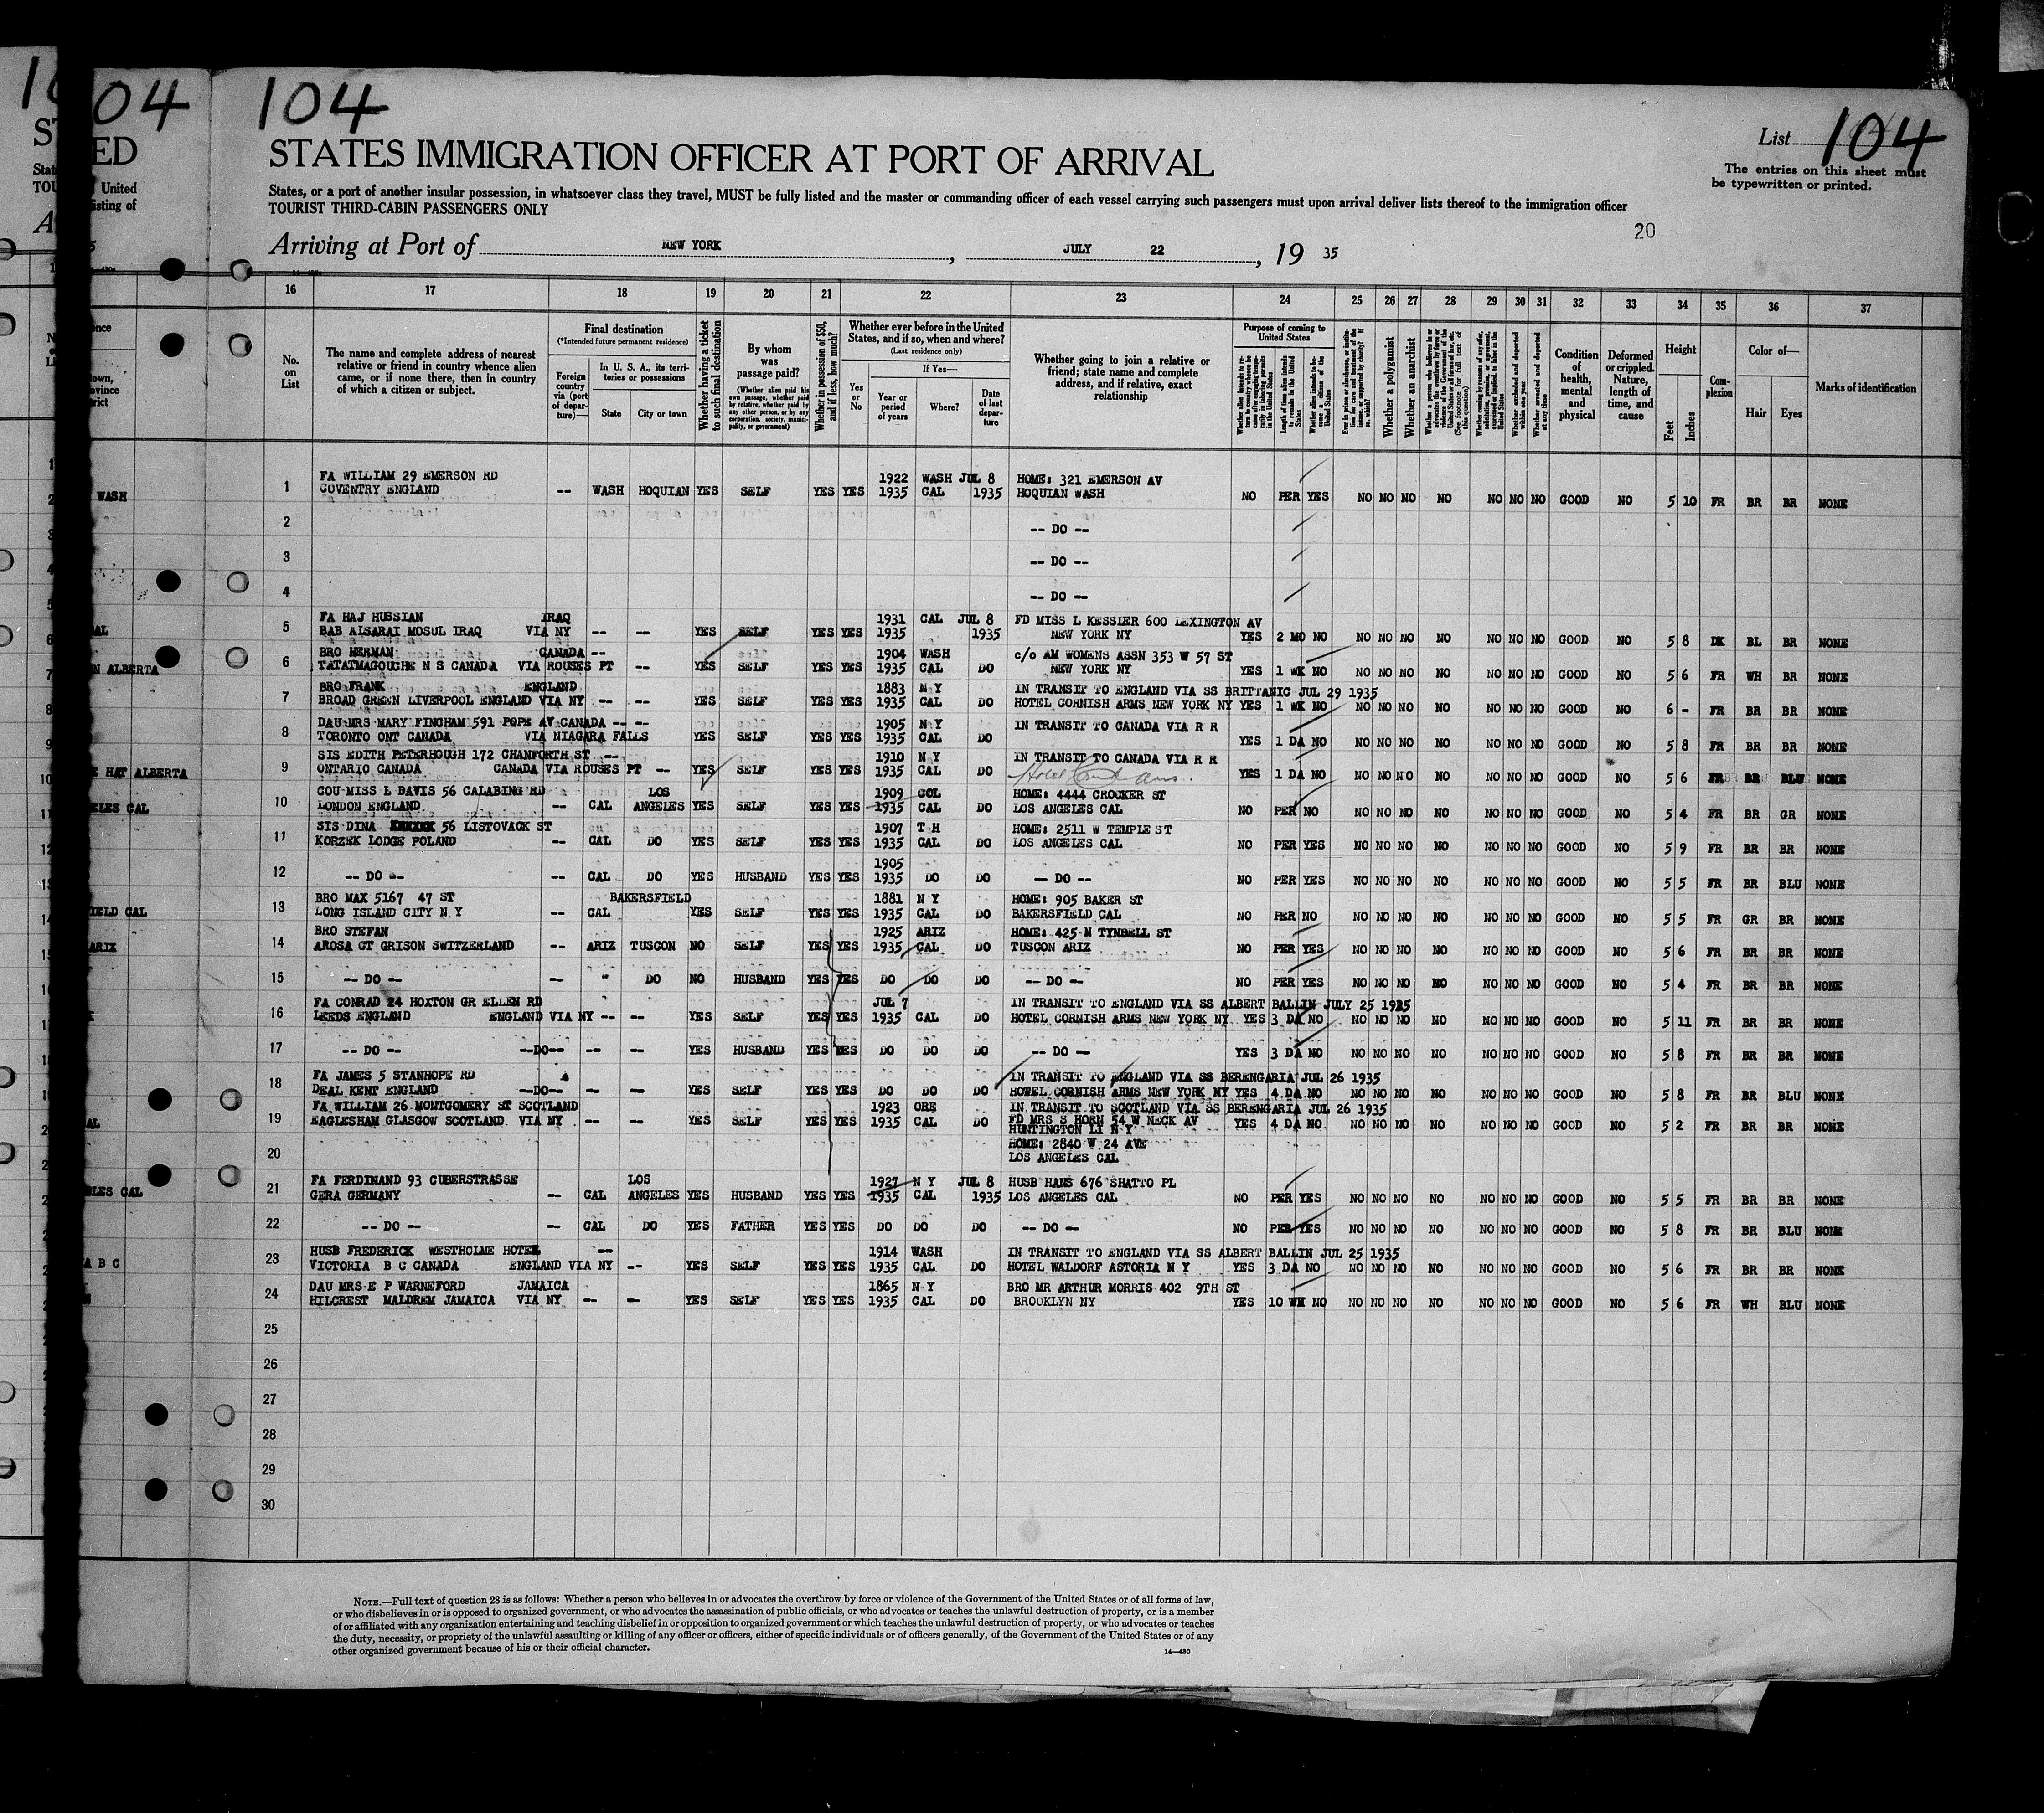 104
04
ED
United
isting of
104
List 104
STATES IMMIGRATION OFFICER AT PORT OF ARRIVAL
The entries on this sheet must
be typewritten or printed.
States, or a port of another insular possession, in whatsoever class they travel, MUST be fully listed and the master or commanding officer of each vessel carrying such passengers must upon arrival deliver lists thereof to the immigration officer
TOURIST THIRD-CABIN PASSENGERS ONLY
20
Arriving at Port of NEW YORK, JULY 22, 19 35
16 17 18 19 20 21 22 23 24 25 26 27 28 29 30 31 32 33 34 35 36 37
No. on List
The name and complete address of nearest relative or friend in country whence alien came, or if none there, then in country of which a citizen or subject.
Final destination
(*Intended future permanent residence)
Foreign country via (port of departure)—
In U. S. A., its territories or possessions
State
City or town
Whether having a ticket to such final destination
By whom was passage paid?
(Whether alien paid his own passage, whether paid by relative, whether paid by any other person, or by any corporation, society, municipality, or government)
Whether in possession of $50, and if less, how much?
Whether ever before in the United States, and if so, when and where?
(Last residence only)
Yes or No
If Yes—
Year or period of years
Where?
Date of last departure
Whether going to join a relative or friend; state name and complete address, and if relative, exact relationship
Purpose of coming to United States
Length of time alien intends to remain in the United States
Whether alien intends to become a citizen of the United States
Whether a polygamist
Whether an anarchist
Whether excluded and deported within one year
Whether arrested and deported at any time
Condition of health, mental and physical
Deformed or crippled. Nature, length of time, and cause
Height
Feet
Inches
Complexion
Color of—
Hair
Eyes
Marks of identification
WASH
FA WILLIAM 29 EMERSON RD 1922 WASH JUL 8 HOME: 321 EMERSON AV
1 COVENTRY ENGLAND -- WASH HOQUIAN YES SELF YES YES 1935 CAL 1935 HOQUIAN WASH NO PER YES NO NO NO NO NO NO NO GOOD NO 5 10 FR BR BR NONE
2 -- DO --
3 -- DO --
4 -- DO --
FA HAJ HUSSIAN IRAQ 1931 CAL JUL 8 FD MISS L KESSLER 600 LEXINGTON AV
5 BAB ALSARAI MOSUL IRAQ VIA NY -- -- YES SELF YES YES 1935 1935 NEW YORK NY YES 2 MO NO NO NO NO NO NO NO NO GOOD NO 5 8 DK BL BR NONE
BRO HERMAN CANADA -- 1904 WASH c/o AM WOMENS ASSN 353 W 57 ST
6 TATATMAGOUCHE N S CANADA VIA ROUSES PT -- YES SELF YES YES 1935 CAL DO NEW YORK NY YES 1 WK NO NO NO NO NO NO NO NO GOOD NO 5 6 FR WH BR NONE
N ALBERTA
BRO FRANK ENGLAND 1883 N Y IN TRANSIT TO ENGLAND VIA SS BRITTANIC JUL 29 1935
7 BROAD GREEN LIVERPOOL ENGLAND VIA NY -- -- YES SELF YES YES 1935 CAL DO HOTEL CORNISH ARMS NEW YORK NY YES 1 WK NO NO NO NO NO NO NO NO GOOD NO 6 - FR BR BR NONE
DAU MRS MARY FINGHAM 591 POPE AV CANADA -- -- 1905 N Y IN TRANSIT TO CANADA VIA R R
8 TORONTO ONT CANADA VIA NIAGARA FALLS YES SELF YES YES 1935 CAL DO YES 1 DA NO NO NO NO NO NO NO NO GOOD NO 5 8 FR BR BR NONE
SIS EDITH PETERHOUGH 172 CHANFORTH ST -- 1910 N Y IN TRANSIT TO CANADA VIA R R
9 ONTARIO CANADA CANADA VIA ROUSES PT -- YES SELF YES YES 1935 CAL DO YES 1 DA NO NO NO NO NO NO NO NO GOOD NO 5 6 FR BR BLU NONE
E HAT ALBERTA
COU MISS L DAVIS 56 CALABING RD LOS 1909 COL HOME: 4444 CROCKER ST
10 LONDON ENGLAND -- CAL ANGELES YES SELF YES YES 1935 CAL DO LOS ANGELES CAL NO PER NO NO NO NO NO NO NO NO GOOD NO 5 4 FR BR GR NONE
ELES CAL
SIS DINA 56 LISTOVACK ST 1907 T H HOME: 2511 W TEMPLE ST
11 KORZEK LODGE POLAND -- CAL DO YES SELF YES YES 1935 CAL DO LOS ANGELES CAL NO PER YES NO NO NO NO NO NO NO GOOD NO 5 9 FR BR BR NONE
1905
12 -- DO -- -- CAL DO YES HUSBAND YES YES 1935 DO DO -- DO -- NO PER YES NO NO NO NO NO NO NO GOOD NO 5 5 FR BR BLU NONE
BRO MAX 5167 47 ST BAKERSFIELD 1881 N Y HOME: 905 BAKER ST
13 LONG ISLAND CITY N Y -- CAL YES SELF YES YES 1935 CAL DO BAKERSFIELD CAL NO PER NO NO NO NO NO NO NO NO GOOD NO 5 5 FR GR BR NONE
IELD CAL
BRO STEFAN 1925 ARIZ HOME: 425 N TYNDELL ST
14 AROSA CT GRISON SWITZERLAND -- ARIZ TUSCON NO SELF YES YES 1935 CAL DO TUSCON ARIZ NO PER YES NO NO NO NO NO NO NO GOOD NO 5 6 FR BR BR NONE
ARIZ
15 -- DO -- -- " DO NO HUSBAND YES YES DO DO DO -- DO -- NO PER YES NO NO NO NO NO NO NO GOOD NO 5 4 FR BR BR NONE
FA CONRAD 24 HOXTON GR ELLEN RD JUL 7 IN TRANSIT TO ENGLAND VIA SS ALBERT BALLIN JULY 25 1935
16 LEEDS ENGLAND ENGLAND VIA NY -- -- YES SELF YES YES 1935 CAL DO HOTEL CORNISH ARMS NEW YORK NY YES 3 DA NO NO NO NO NO NO NO NO GOOD NO 5 11 FR BR BR NONE
17 -- DO -- --DO-- -- -- YES HUSBAND YES YES DO DO DO -- DO -- YES 3 DA NO NO NO NO NO NO NO NO GOOD NO 5 8 FR BR BR NONE
FA JAMES 5 STANHOPE RD IN TRANSIT TO ENGLAND VIA SS BERENGARIA JUL 26 1935
18 DEAL KENT ENGLAND --DO-- -- -- YES SELF YES YES DO DO DO HOTEL CORNISH ARMS NEW YORK NY YES 4 DA NO NO NO NO NO NO NO NO GOOD NO 5 8 FR BR BLU NONE
FA WILLIAM 26 MONTGOMERY ST SCOTLAND 1923 ORE IN TRANSIT TO SCOTLAND VIA SS BERENGARIA JUL 26 1935
19 EAGLESHAM GLASGOW SCOTLAND VIA NY -- -- YES SELF YES YES 1935 CAL DO FD MRS S HORN 54 W NECK AV YES 4 DA NO NO NO NO NO NO NO NO GOOD NO 5 2 FR BR BR NONE
HUNTINGTON LI N Y
HOME: 2840 W 24 AVE
20 LOS ANGELES CAL
FA FERDINAND 93 CUBERSTRASSE LOS 1927 N Y JUL 8 HUSB HANS 676 SHATTO PL
21 GERA GERMANY -- CAL ANGELES YES HUSBAND YES YES 1935 CAL 1935 LOS ANGELES CAL NO PER YES NO NO NO NO NO NO NO GOOD NO 5 5 FR BR BR NONE
LES CAL
22 -- DO -- -- CAL DO YES FATHER YES YES DO DO DO -- DO -- NO PER YES NO NO NO NO NO NO NO GOOD NO 5 8 FR BR BLU NONE
HUSB FREDERICK WESTHOLME HOTEL -- 1914 WASH IN TRANSIT TO ENGLAND VIA SS ALBERT BALLIN JUL 25 1935
23 VICTORIA B C CANADA ENGLAND VIA NY -- YES SELF YES YES 1935 CAL DO HOTEL WALDORF ASTORIA N Y YES 3 DA NO NO NO NO NO NO NO NO GOOD NO 5 6 FR BR BR NONE
A B C
DAU MRS E P WARNEFORD JAMAICA 1865 N Y BRO MR ARTHUR MORRIS 402 9TH ST
24 HILCREST MALDREM JAMAICA VIA NY -- -- YES SELF YES YES 1935 CAL DO BROOKLYN NY YES 10 WK NO NO NO NO NO NO NO NO GOOD NO 5 6 FR WH BLU NONE
25
26
27
28
29
30
NOTE.—Full text of question 28 is as follows: Whether a person who believes in or advocates the overthrow by force or violence of the Government of the United States or of all forms of law,
or who disbelieves in or is opposed to organized government, or who advocates the assassination of public officials, or who advocates or teaches the unlawful destruction of property, or is a member
of or affiliated with any organization entertaining and teaching disbelief in or opposition to organized government or which teaches the unlawful destruction of property, or who advocates or teaches
the duty, necessity, or propriety of the unlawful assaulting or killing of any officer or officers, either of specific individuals or of officers generally, of the Government of the United States or of any
other organized government because of his or their official character.
14—430